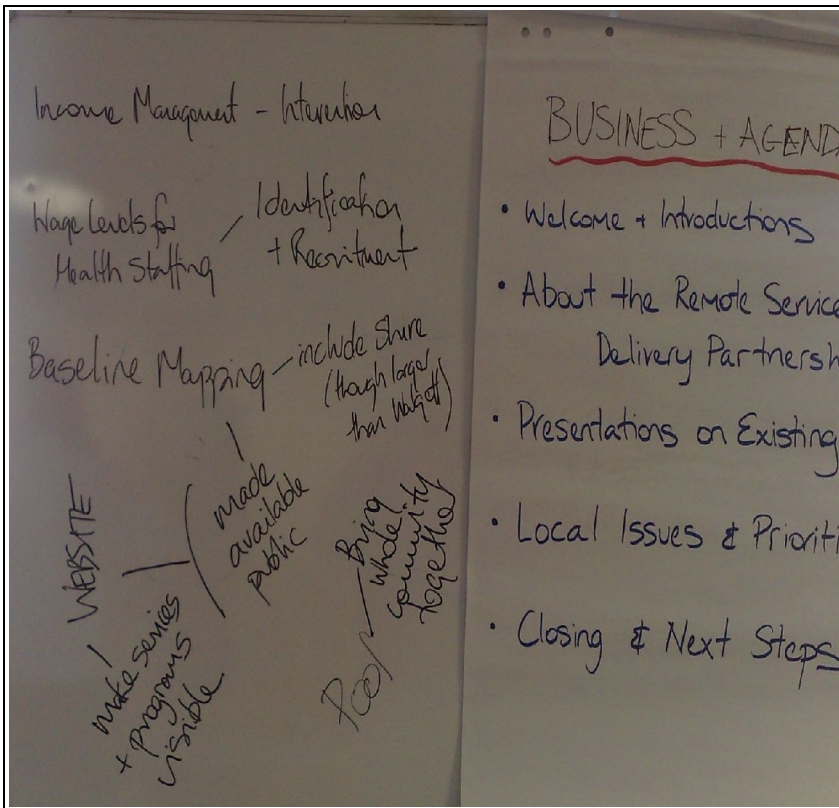 Income Management - Intervention
Wage Levels for
Health Staffing
Identification
+ Recruitment
Baseline Mapping
include Shire
(though larger
than
made
available
public
WEBSITE
make services
+ programs
visible
Pool
Bring
whole
community
together
BUSINESS + AGENDA
• Welcome + Introductions
• About the Remote Service
Delivery Partnersh
• Presentations on Existing
• Local Issues & Prioriti
• Closing & Next Steps